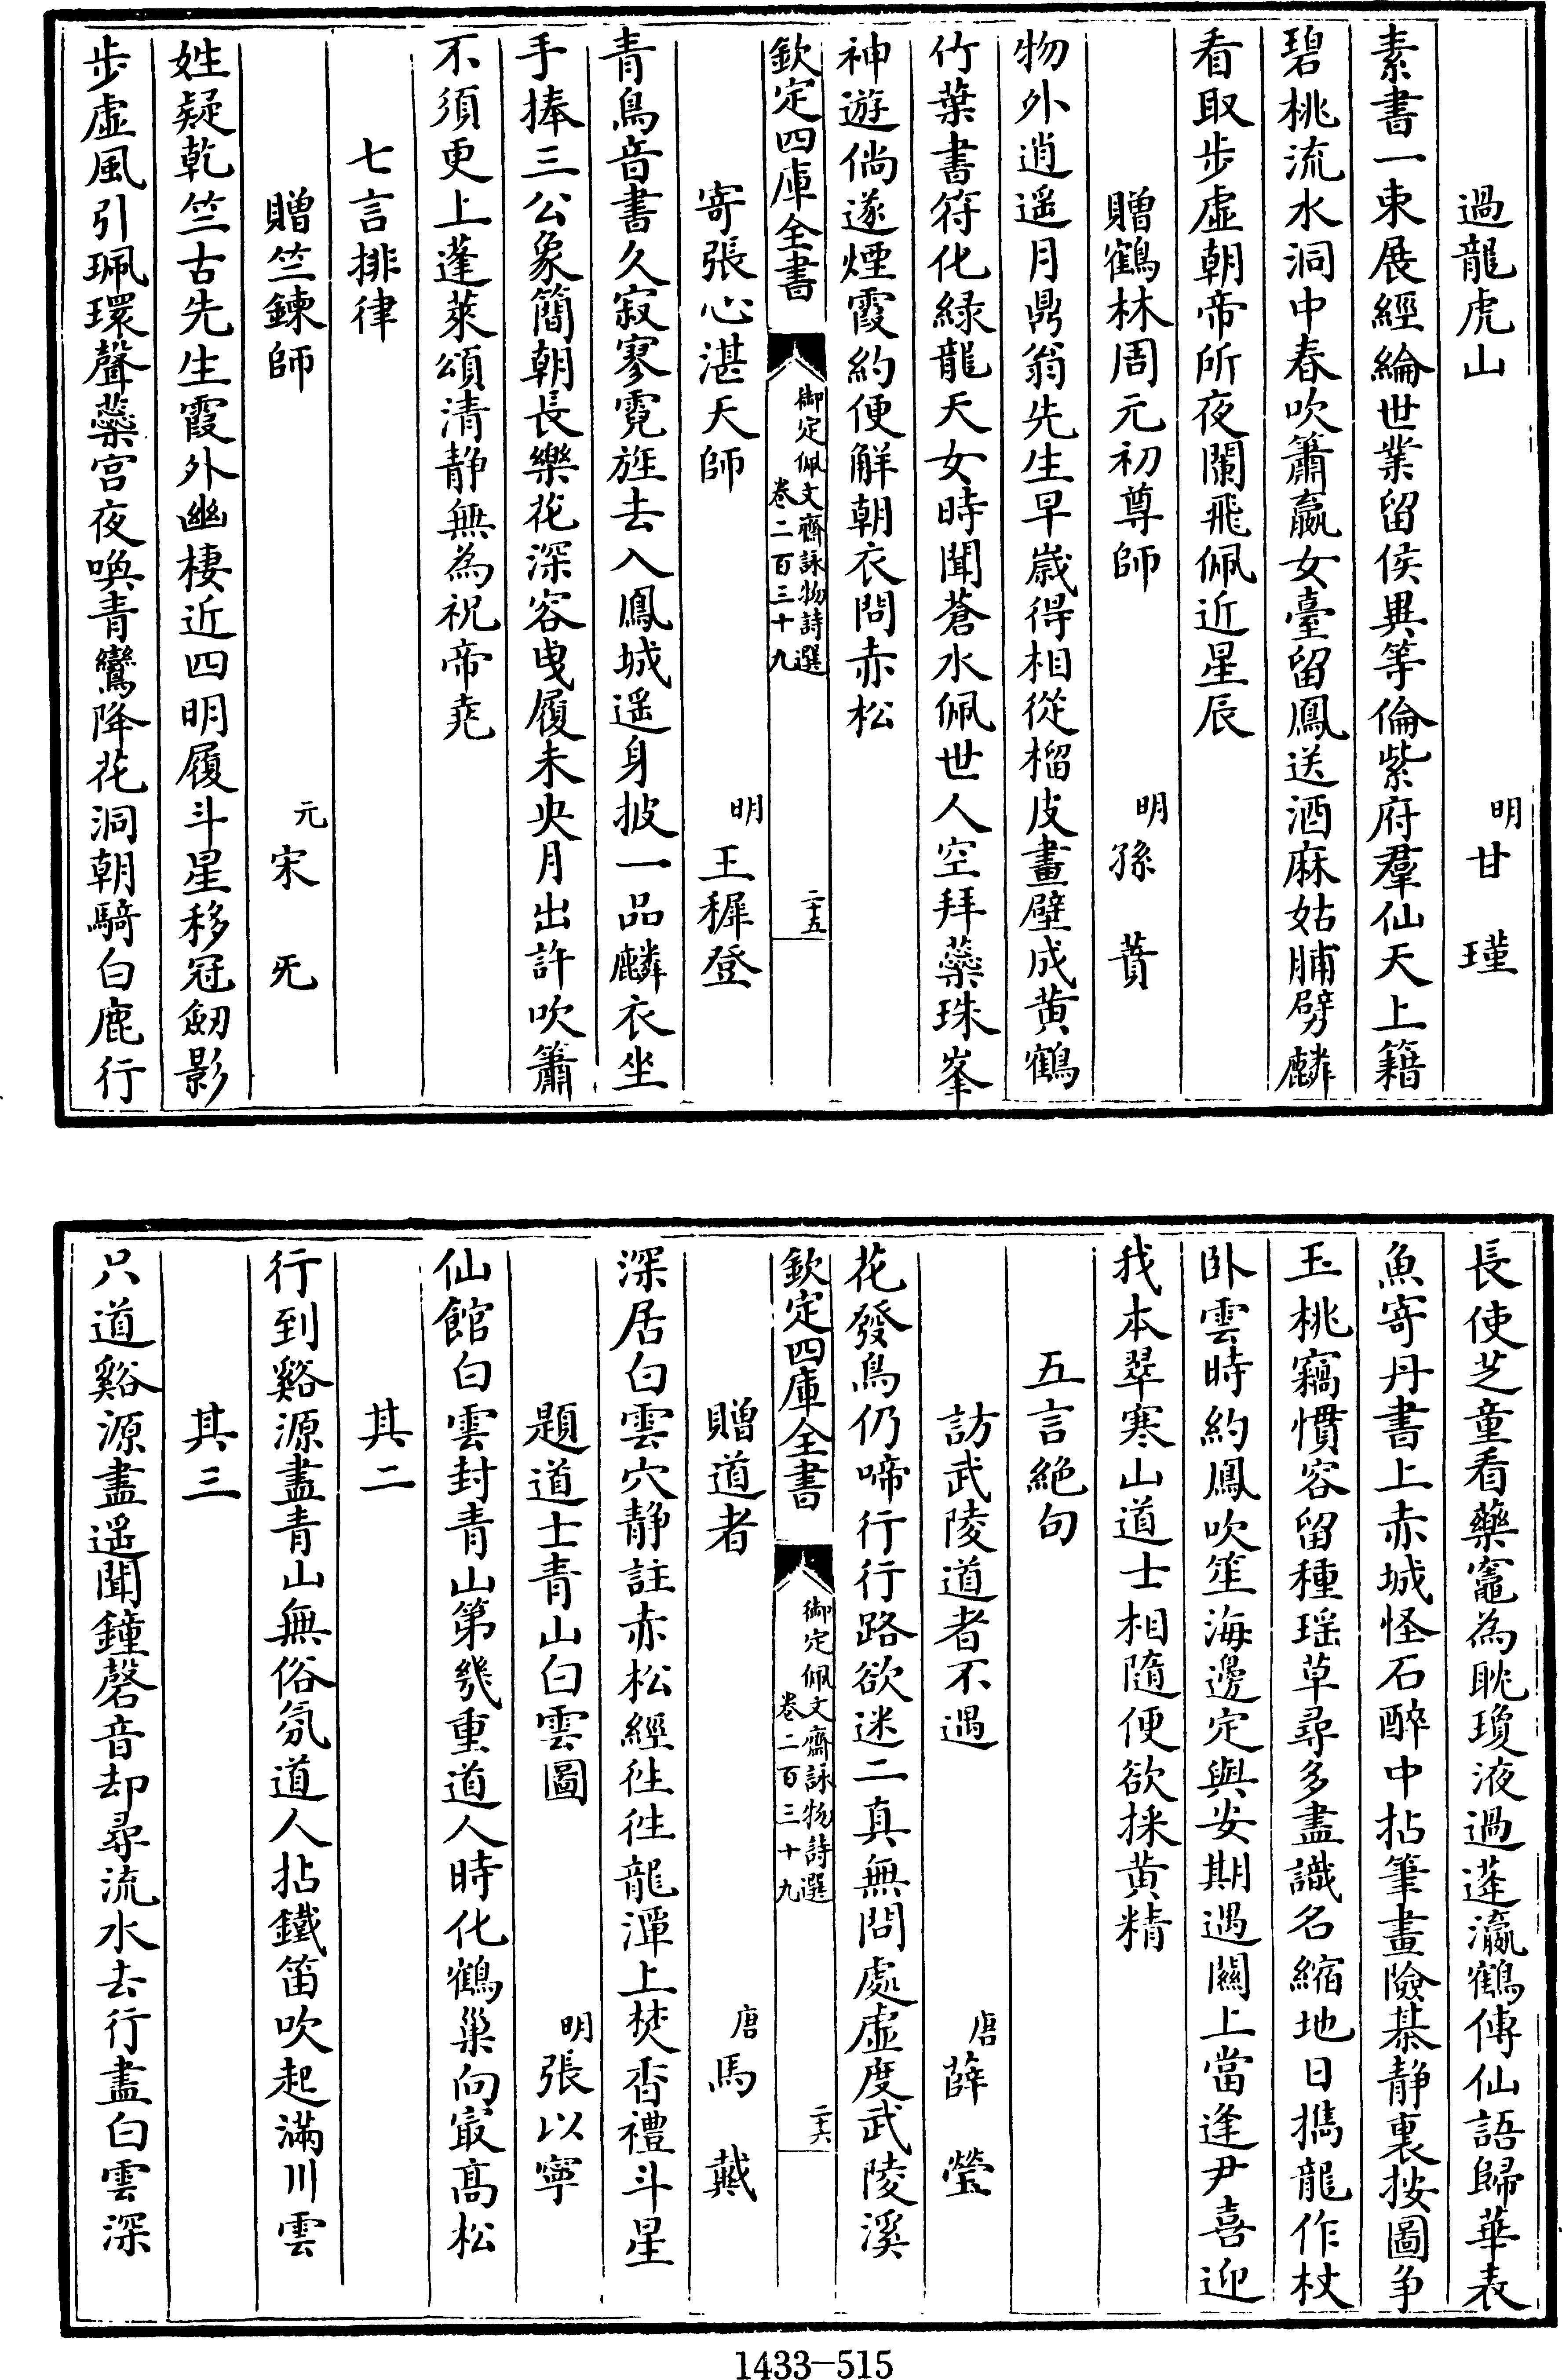 過龍虎山
明甘瑾
素書一束展經綸世業留侯異等倫紫府羣仙天上籍
碧桃流水洞中春吹簫嬴女臺留鳳送酒麻姑脯劈麟
看取步虛朝帝所夜闌飛佩近星辰
贈鶴林周元初尊師
明孫蕡
物外逍遥月鼎翁先生早嵗得相從榴皮畫壁成黄鶴
竹葉書符化緑龍天女時聞蒼水佩世人空拜蘂珠峯
神遊倘遂煙霞約便解朝衣問赤松
欽定四庫全書
御定佩文齋詠物詩選
卷二百三十九
二十五
寄張心湛天師
明王穉登
青鳥音書久寂寥霓旌去入鳳城遥身披一品麟衣坐
手捧三公象簡朝長樂花深容曳履未央月出許吹簫
不須更上蓬萊頌清静無為祝帝堯
七言排律
贈竺鍊師
元宋旡
姓疑乾竺古先生霞外幽棲近四明履斗星移冠劒影
步虛風引珮環聲蘂宫夜喚青鸞降花洞朝騎白鹿行
長使芝童看藥竈為耽瓊液過蓬瀛鶴傳仙語歸華表
魚寄丹書上赤城怪石醉中拈筆畫險棊静裏按圖争
玉桃竊慣容留種瑶草尋多盡識名縮地日攜龍作杖
卧雲時約鳳吹笙海邊定與安期遇關上當逢尹喜迎
我本翠寒山道士相隨便欲採黄精
五言絶句
訪武陵道者不遇
唐薛瑩
花發鳥仍啼行行路欲迷二真無問處虛度武陵溪
欽定四庫全書
御定佩文齋詠物詩選
卷二百三十九
二十六
贈道者
唐馬戴
深居白雲穴静註赤松經徃徃龍潭上焚香禮斗星
題道士青山白雲圖
明張以寧
仙館白雲封青山第幾重道人時化鶴巢向最髙松
其二
行到谿源盡青山無俗氛道人拈鐵笛吹起滿川雲
其三
只道谿源盡遥聞鐘磬音却尋流水去行盡白雲深
1433-515